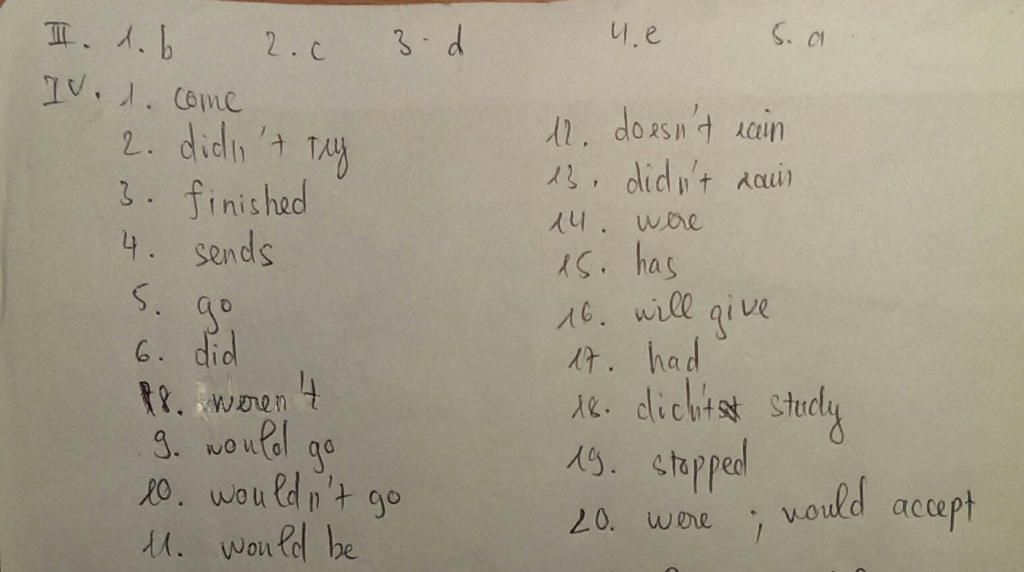 III. 1. b 2. c 3. d 4. e 5. a
IV. 1. come
2. didn't try
3. finished
4. sends
5. go
6. did
8. weren't
9. would go
10. wouldn't go
11. would be
12. doesn't rain
13. didn't rain
14. were
15. has
16. will give
17. had
18. didn't study
19. stopped
20. were ; would accept